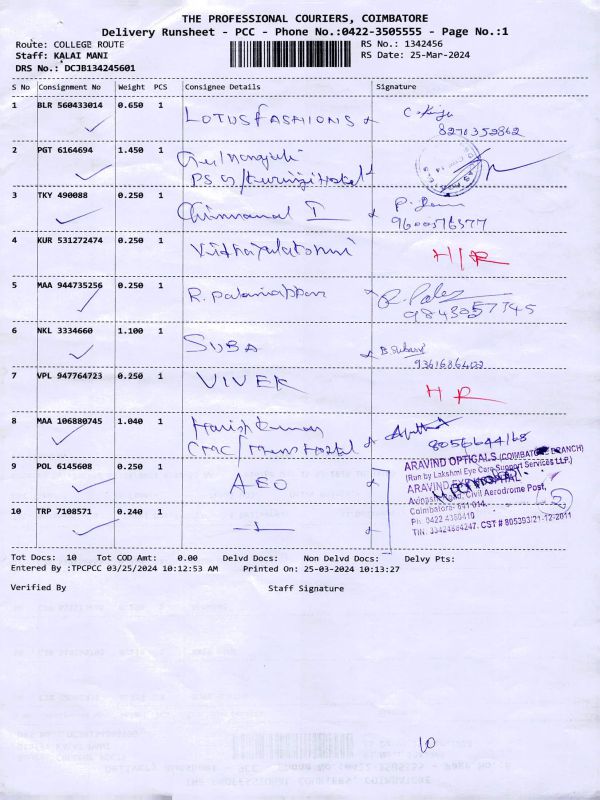 THE PROFESSIONAL COURIERS, COIMBATORE
Delivery Runsheet - PCC - Phone No.:0422-3505555 - Page No.:1
Route: COLLEGE ROUTE RS No.: 1342456
Staff: KALAI MANI RS Date: 25-Mar-2024
DRS No.: DCJB134245601
S No Consignment No Weight PCS Consignee Details Signature
1 BLR 560433014 0.650 1 LOTUS FASHIONS
8270352862
2 PGT 6164694 1.450 1
3 TKY 490088 0.250 1 Chinnamal I
9600576377
4 KUR 531272474 0.250 1 H/R
5 MAA 944735256 0.250 1 R. Palaniappan
9843057745
6 NKL 3334660 1.100 1 SUBA
9361686402
7 VPL 947764723 0.250 1 VIVEK HR
8 MAA 106880745 1.040 1 Harish Kumar
CMC / Mens Hostel 8056644168
9 POL 6145608 0.250 1 AEO
10 TRP 7108571 0.240 1
ARAVIND OPTICALS (COIMBATORE BRANCH)
(Run by Lakshmi Eye Care Support Services LLP.)
ARAVIND EYE HOSPITAL
Avinashi Road, Civil Aerodrome Post,
Coimbatore- 641 014.
Ph: 0422 4360410
TIN. 33424884247. CST # 805393/21-12-2011
Tot Docs: 10 Tot COD Amt: 0.00 Delvd Docs: Non Delvd Docs: Delvy Pts:
Entered By :TPCPCC 03/25/2024 10:12:53 AM Printed On: 25-03-2024 10:13:27
Verified By Staff Signature
10